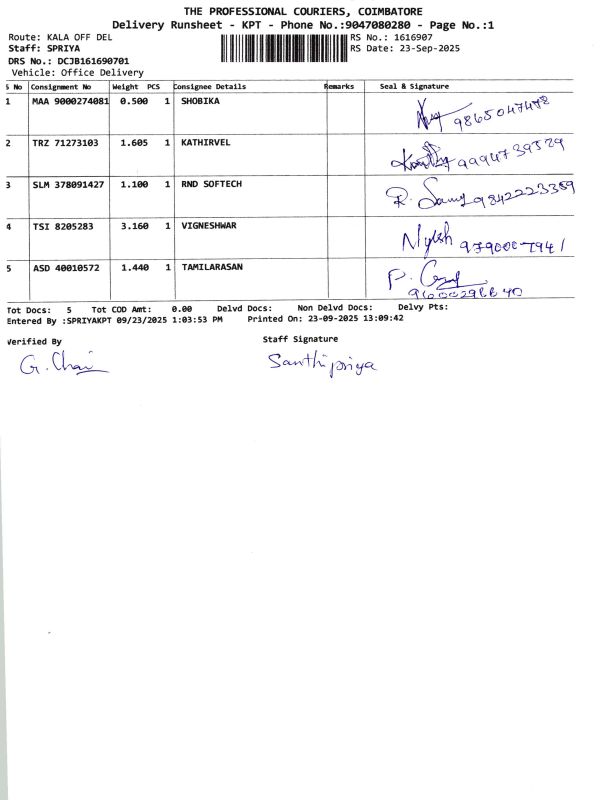 THE PROFESSIONAL COURIERS, COIMBATORE
Delivery Runsheet - KPT - Phone No.:9047080280 - Page No.:1
Route: KALA OFF DEL RS No.: 1616907
Staff: SPRIYA RS Date: 23-Sep-2025
DRS No.: DCJB161690701
Vehicle: Office Delivery
S No Consignment No Weight PCS Consignee Details Remarks Seal & Signature
1 MAA 9000274081 0.500 1 SHOBIKA
2 TRZ 71273103 1.605 1 KATHIRVEL 9994739529
3 SLM 378091427 1.100 1 RND SOFTECH 9842223359
4 TSI 8205283 3.160 1 VIGNESHWAR 9790007941
5 ASD 40010572 1.440 1 TAMILARASAN
Tot Docs: 5 Tot COD Amt: 0.00 Delvd Docs: Non Delvd Docs: Delvy Pts:
Entered By :SPRIYAKPT 09/23/2025 1:03:53 PM Printed On: 23-09-2025 13:09:42
Verified By Staff Signature
Santhipriya